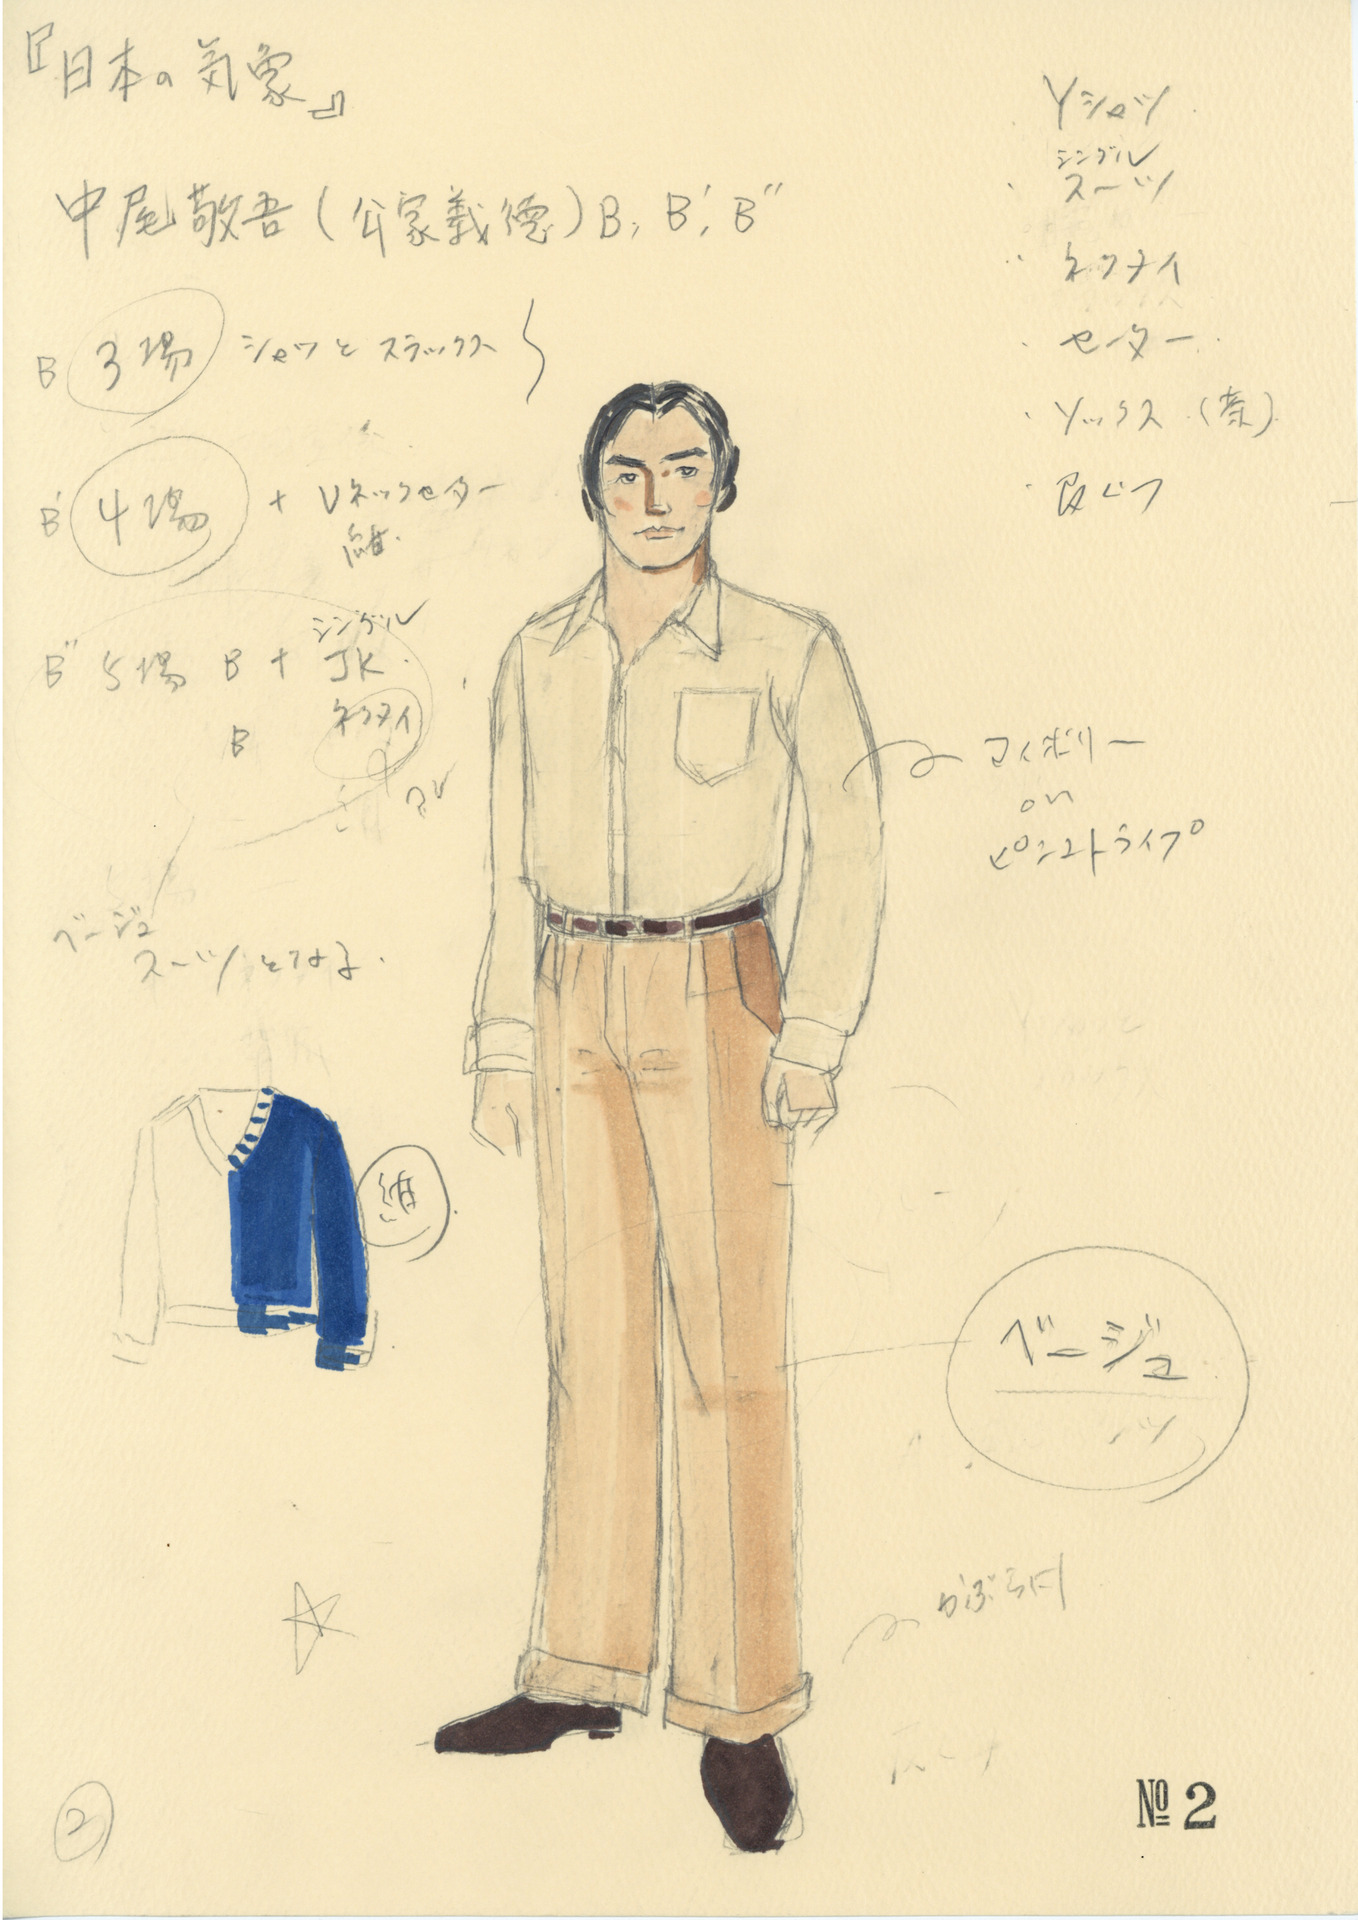 『日本の気象』
中尾敬吾(公家義徳)B, B', B"
B 3場 シャツとスラックス
B' 4場 + Vネックセーター
紺
B" 5場 B + シングル
JK.
B ネクタイ
ベージュ
スーツとなる.
紺
②
Yシャツ
シングル
スーツ
ネクタイ
セーター
ソックス(茶)
アイボリー
on
ピンストライプ
ベージュ
かぶら
№ 2